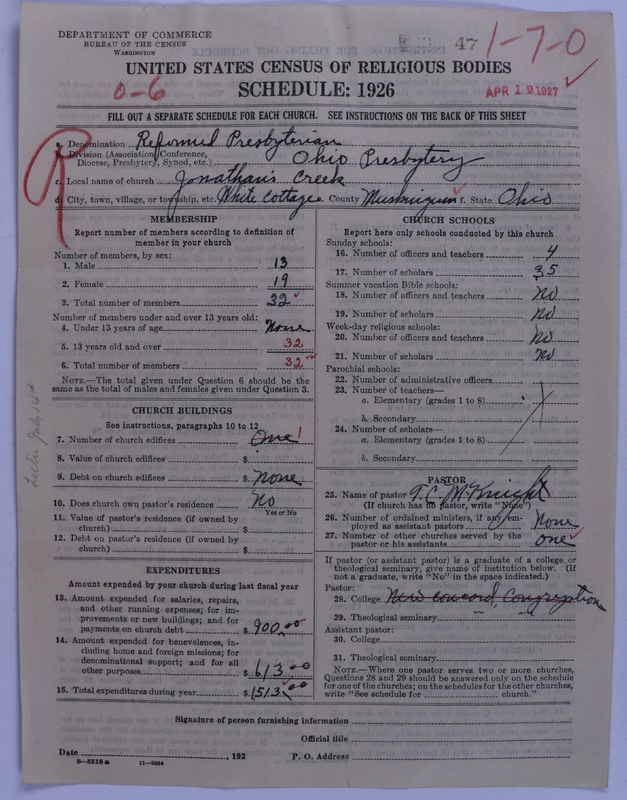 DEPARTMENT OF COMMERCE
BUREAU OF THE CENSUS
WASHINGTON
47 1-7-0
UNITED STATES CENSUS OF RELIGIOUS BODIES
0-6
SCHEDULE: 1926
APR 12 1927
FILL OUT A SEPARATE SCHEDULE FOR EACH CHURCH. SEE INSTRUCTIONS ON THE BACK OF THIS SHEET
R
a. Denomination Reformed Presbyterian
b. Division (Association, Conference, Diocese, Presbytery, Synod, etc.) Ohio Presbytery
c. Local name of church Jonathan's Creek
d. City, town, village, or township, etc. White Cottage e. County Muskingum f. State Ohio
MEMBERSHIP
Report number of members according to definition of
member in your church
Number of members, by sex:
1. Male 13
2. Female 19
3. Total number of members 32
Number of members under and over 13 years old:
4. Under 13 years of age None
5. 13 years old and over 32
6. Total number of members 32
NOTE.—The total given under Question 6 should be the
same as the total of males and females given under Question 3.
CHURCH BUILDINGS
See instructions, paragraphs 10 to 12
7. Number of church edifices One 1
8. Value of church edifices $
9. Debt on church edifices $ None
10. Does church own pastor's residence No
Yes or No
11. Value of pastor's residence (if owned by
church) $
12. Debt on pastor's residence (if owned by
church) $
EXPENDITURES
Amount expended by your church during last fiscal year
13. Amount expended for salaries, repairs,
and other running expenses; for im-
provements or new buildings; and for
payments on church debt $ 900.00
14. Amount expended for benevolences, in-
cluding home and foreign missions; for
denominational support; and for all
other purposes $ 613.00
15. Total expenditures during year $ 1513.00
CHURCH SCHOOLS
Report here only schools conducted by this church
Sunday schools:
16. Number of officers and teachers 4
17. Number of scholars 35
Summer vacation Bible schools:
18. Number of officers and teachers No
19. Number of scholars No
Week-day religious schools:
20. Number of officers and teachers No
21. Number of scholars No
Parochial schools:
22. Number of administrative officers
23. Number of teachers—
a. Elementary (grades 1 to 8)
b. Secondary
24. Number of scholars—
a. Elementary (grades 1 to 8)
b. Secondary
PASTOR
25. Name of pastor T.C. McKnight
(If church has no pastor, write "None")
26. Number of ordained ministers, if any, em-
ployed as assistant pastors None
27. Number of other churches served by the
pastor or his assistants one
If pastor (or assistant pastor) is a graduate of a college or
theological seminary, give name of institution below. (If
not a graduate, write "No" in the space indicated.)
Pastor:
28. College New Concord, Congregation
29. Theological seminary " "
Assistant pastor:
30. College
31. Theological seminary
NOTE.—Where one pastor serves two or more churches,
Questions 28 and 29 should be answered only on the schedule
for one of the churches; on the schedules for the other churches,
write "See schedule for church."
Signature of person furnishing information
Official title
Date , 192 P. O. Address
8—5518a 11—9064